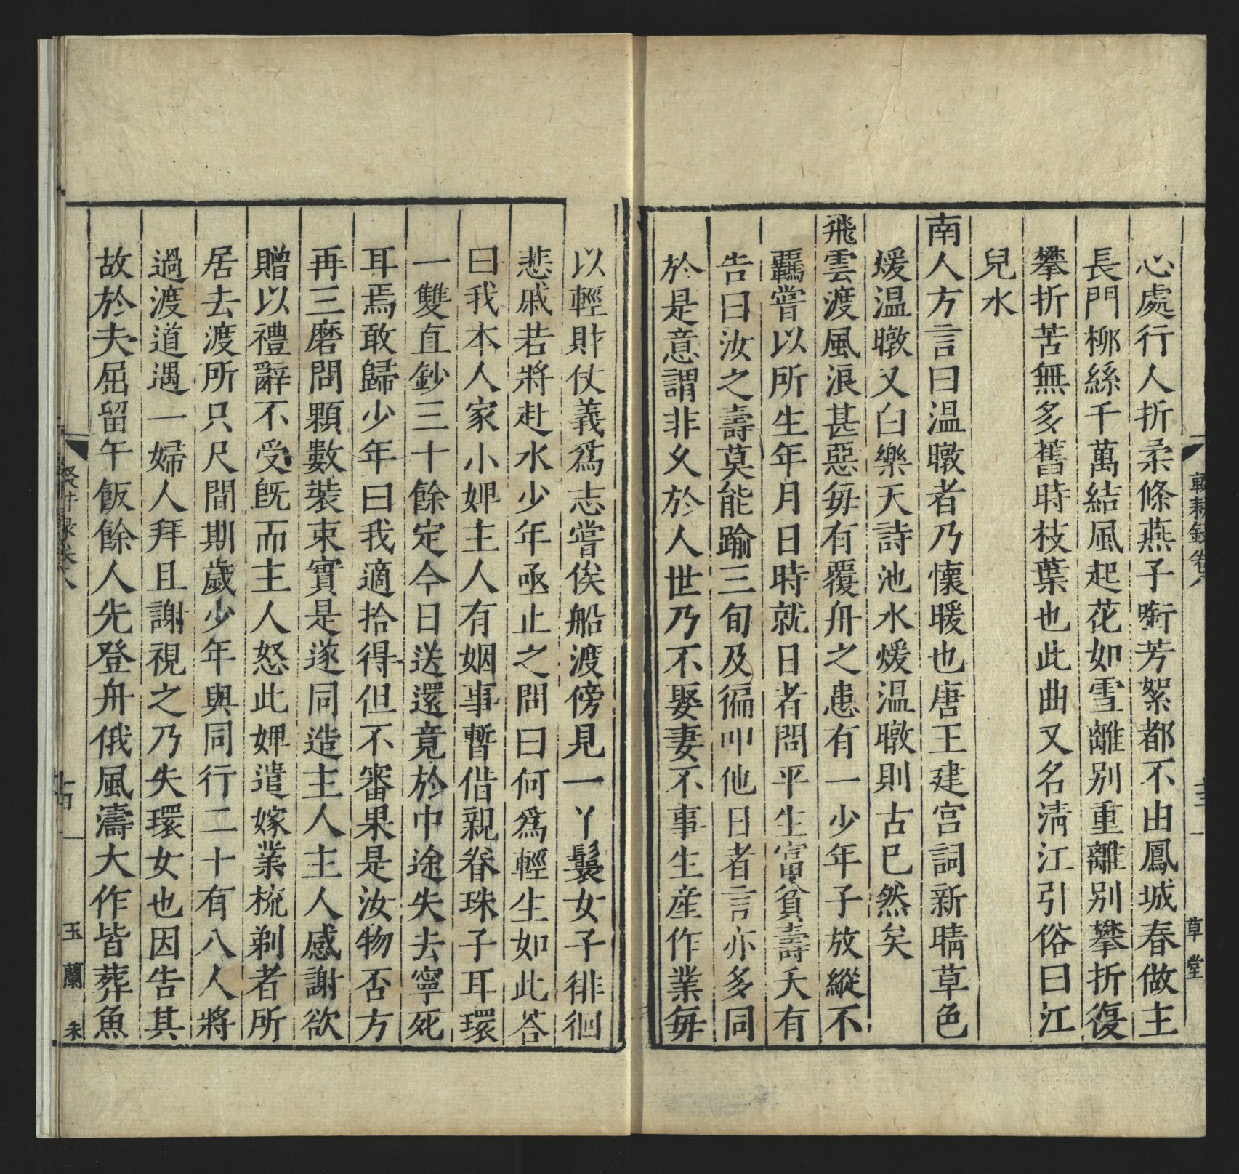 輟耕錄卷八
十三
草堂
心處行人折柔條燕子㘅芳絮都不由鳳城春做主
長門柳絲千萬結風起花如雪離別重離別攀折復
攀折苦無多舊時枝葉也此曲又名淸江引俗曰江
兒水
南人方言曰温暾者乃懷暖也唐王建宮詞新晴草色
煖温暾又白樂天詩池水煖温暾則古已然矣
飛雲渡風浪甚惡每有覆舟之患有一少年子放縱不
羈嘗以所生年月日時就日者問平生富貧壽夭有
告曰汝之壽莫能踰三旬及徧叩他日者言亦多同
於是意謂非久於人世乃不娶妻不事生産作業每
以輕財仗義爲志嘗俟船渡傍見一丫鬟女子徘徊
悲戚若將赴水少年亟止之問曰何爲輕生如此荅
曰我本人家小婢主人有姻事暫借親眷珠子耳環
一雙直鈔三十餘定今日送還竟於中途失去寧死
耳焉敢歸少年曰我適拾得但不審果是汝物否方
再三磨問顆數裝束實是遂同造主人主人感謝欲
贈以禮辭不受旣而主人怒此婢遣嫁業梳剃者所
居去渡所只尺間期歲少年與同行二十有八人將
過渡道遇一婦人拜且謝視之乃失環女也因告其
故於夫屈留午飯餘人先登舟俄風濤大作皆葬魚
輟耕錄卷八
十四
玉蘭